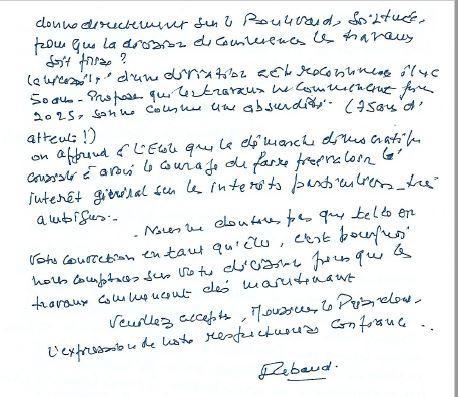 donne directement sur le Boulevard, située,
pour que la décision de commencer les travaux
soit prise ?
La nécessité d'une déviation a été reconnue il y a
50 ans. Proposer que les travaux ne commencent
2025, sonne comme une absurdité. (75 ans d'
attente !)
on apprend à l'Ecole que la démarche démocratique
consiste à avoir le courage de faire prévaloir l'
intérêt général sur les intérêts particuliers
ambigus.
Nous ne doutons pas que telle est
votre conviction en tant qu'élu, c'est pourquoi
nous comptons sur votre décision pour que les
travaux commencent dès maintenant
Veuillez accepter, Monsieur le Président,
l'expression de notre respectueuse confiance ..